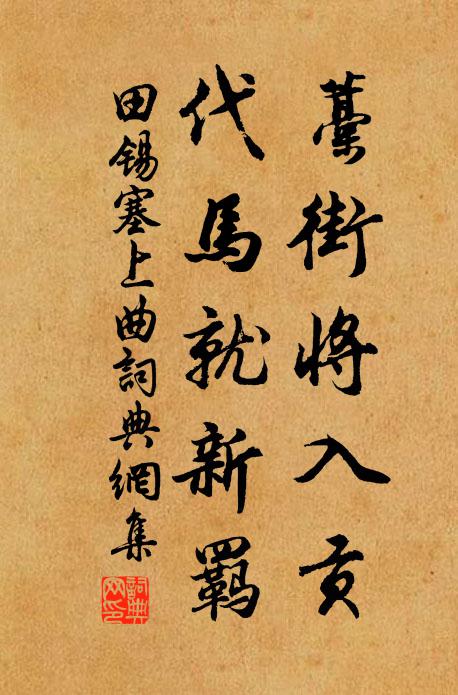 藁街將入贡
代馬就新羈
田锡塞上曲詞典網集
詞典网印